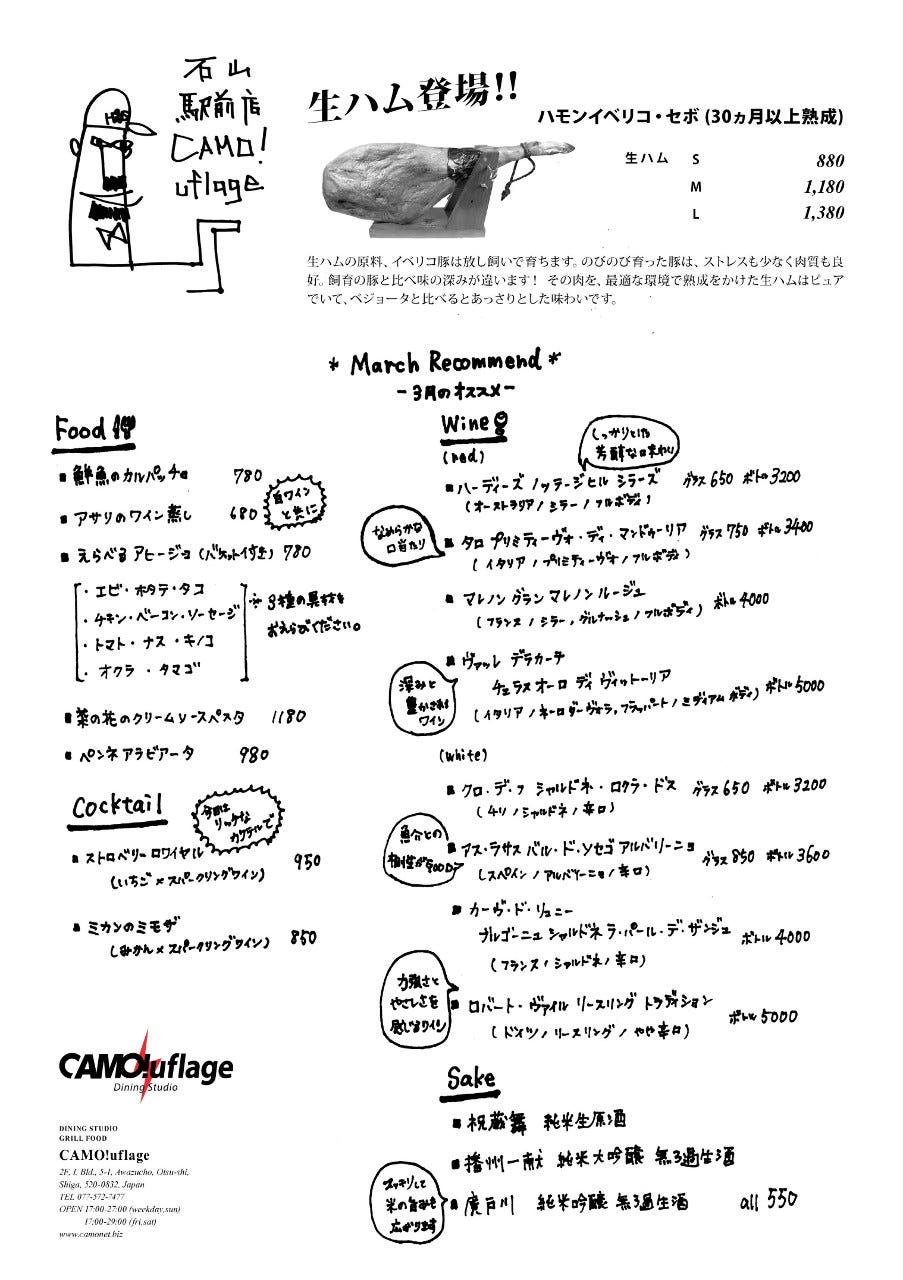 石山
駅前店
CAMO!
uflage
生ハム登場!!
ハモンイベリコ・セボ (30ヵ月以上熟成)
生ハム S 880
M 1,180
L 1,380
生ハムの原料、イベリコ豚は放し飼いで育ちます。のびのび育った豚は、ストレスも少なく肉質も良
好。飼育の豚と比べ味の深みが違います! その肉を、最適な環境で熟成をかけた生ハムはピュア
でいて、ベジョータと比べるとあっさりとした味わいです。
* March Recommend *
-3月のオススメ-
Food
■ 鮮魚のカルパッチョ 780
■ アサリのワイン蒸し 680
白ワイン
と共に
■ えらべるアヒージョ (バケット付き) 780
・エビ・ホタテ・タコ
・チキン・ベーコン・ソーセージ
・トマト・ナス・キノコ
・オクラ・タマゴ
※3種の具材を
おえらびください。
■ 菜の花のクリームソースパスタ 1180
■ ペンネアラビアータ 980
Cocktail
今月は
リッチな
カクテルで
■ ストロベリーロワイヤル 950
(いちご×スパークリングワイン)
■ ミカンのミモザ
(みかん×スパークリングワイン) 850
Wine
(red)
しっかりとした
芳醇な味わい
■ ハーディーズ ノッテージヒル シラーズ グラス650 ボトル3200
(オーストラリア/シラー/フルボディ)
なめらかな
口当たり
■ タロ プリミティーヴォ・ディ・マンドゥーリア グラス750 ボトル3400
(イタリア/プリミティーヴォ/フルボディ)
■ マレノン グラン マレノン ルージュ ボトル4000
(フランス/シラー,グルナッシュ/フルボディ)
■ ヴァッレ デラカーテ
チェラスオーロ ディ ヴィットーリア ボトル5000
(イタリア/ネーロダーヴォラ,フラッパート/ミディアムボディ)
深みと
豊かさある
ワイン
(white)
■ クロ・デ・フ シャルドネ・ロクラ・ドス グラス650 ボトル3200
(チリ/シャルドネ/辛口)
魚介との
相性がGOOD
■ アス・ラサス バル・ド・ソセゴ アルバリーニョ グラス850 ボトル3600
(スペイン/アルバリーニョ/辛口)
■ カーヴ・ド・リュニー
ブルゴーニュ シャルドネ ラ・パール・デ・ザンジュ ボトル4000
(フランス/シャルドネ/辛口)
力強さと
やさしさを
感じるワイン
■ ロバート・ヴァイル リースリング トラディション ボトル5000
(ドイツ/リースリング/やや辛口)
Sake
■ 祝蔵舞 純米生原酒
■ 播州一献 純米大吟醸 無ろ過生酒
■ 廣戸川 純米吟醸 無ろ過生酒 all 550
スッキリして
米の旨みも
広がります
CAMO!uflage
Dining Studio
DINING STUDIO
GRILL FOOD
CAMO!uflage
2F, I. Bld., 5-1, Awazucho, Otsu-shi,
Shiga, 520-0832, Japan
TEL 077-572-7477
OPEN 17:00-27:00 (weekday,sun)
17:00-29:00 (fri,sat)
www.camonet.biz